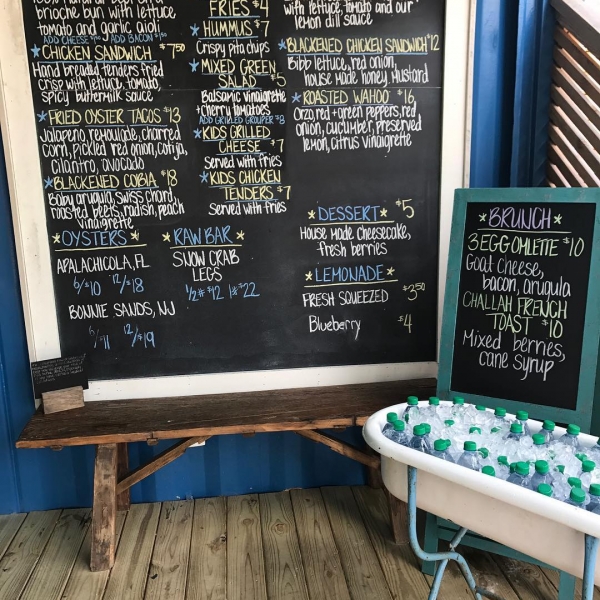 brioche bun with lettuce
tomato and garlic aioli
ADD CHEESE ADD BACON
*CHICKEN SANDWICH $7⁵⁰
Hand breaded tenders fried
crisp with lettuce, tomato,
spicy buttermilk sauce
*FRIED OYSTER TACOS $13
Jalapeno remoulade, charred
corn, pickled red onion, cotija,
cilantro, avocado
*BLACKENED COBIA $18
Baby arugula, swiss chard,
roasted beets, radish, peach
vinaigrette
*OYSTERS*
APALACHICOLA, FL
6/$10 12/$18
BONNIE SANDS, NJ
6/$11 12/$19
FRIES $4
*HUMMUS $7
Crispy pita chips
*MIXED GREEN
SALAD $5
Balsamic vinaigrette
+ cherry tomatoes
ADD GRILLED GROUPER $8
*KIDS GRILLED
CHEESE $7
Served with fries
*KIDS CHICKEN
TENDERS $7
Served with fries
*RAW BAR*
SNOW CRAB
LEGS
1/2# $12 1# $22
with lettuce, tomato and our
lemon dill sauce
*BLACKENED CHICKEN SANDWICH $12
Bibb lettuce, red onion,
house made honey mustard
*ROASTED WAHOO $16
Orzo, red + green peppers, red
onion, cucumber, preserved
lemon, citrus vinaigrette
*DESSERT* $5
House made cheesecake,
fresh berries
*LEMONADE*
FRESH SQUEEZED $3⁵⁰
Blueberry $4
*BRUNCH*
3 EGG OMLETTE $10
Goat cheese,
bacon, arugula
CHALLAH FRENCH
TOAST $10
Mixed berries,
cane syrup